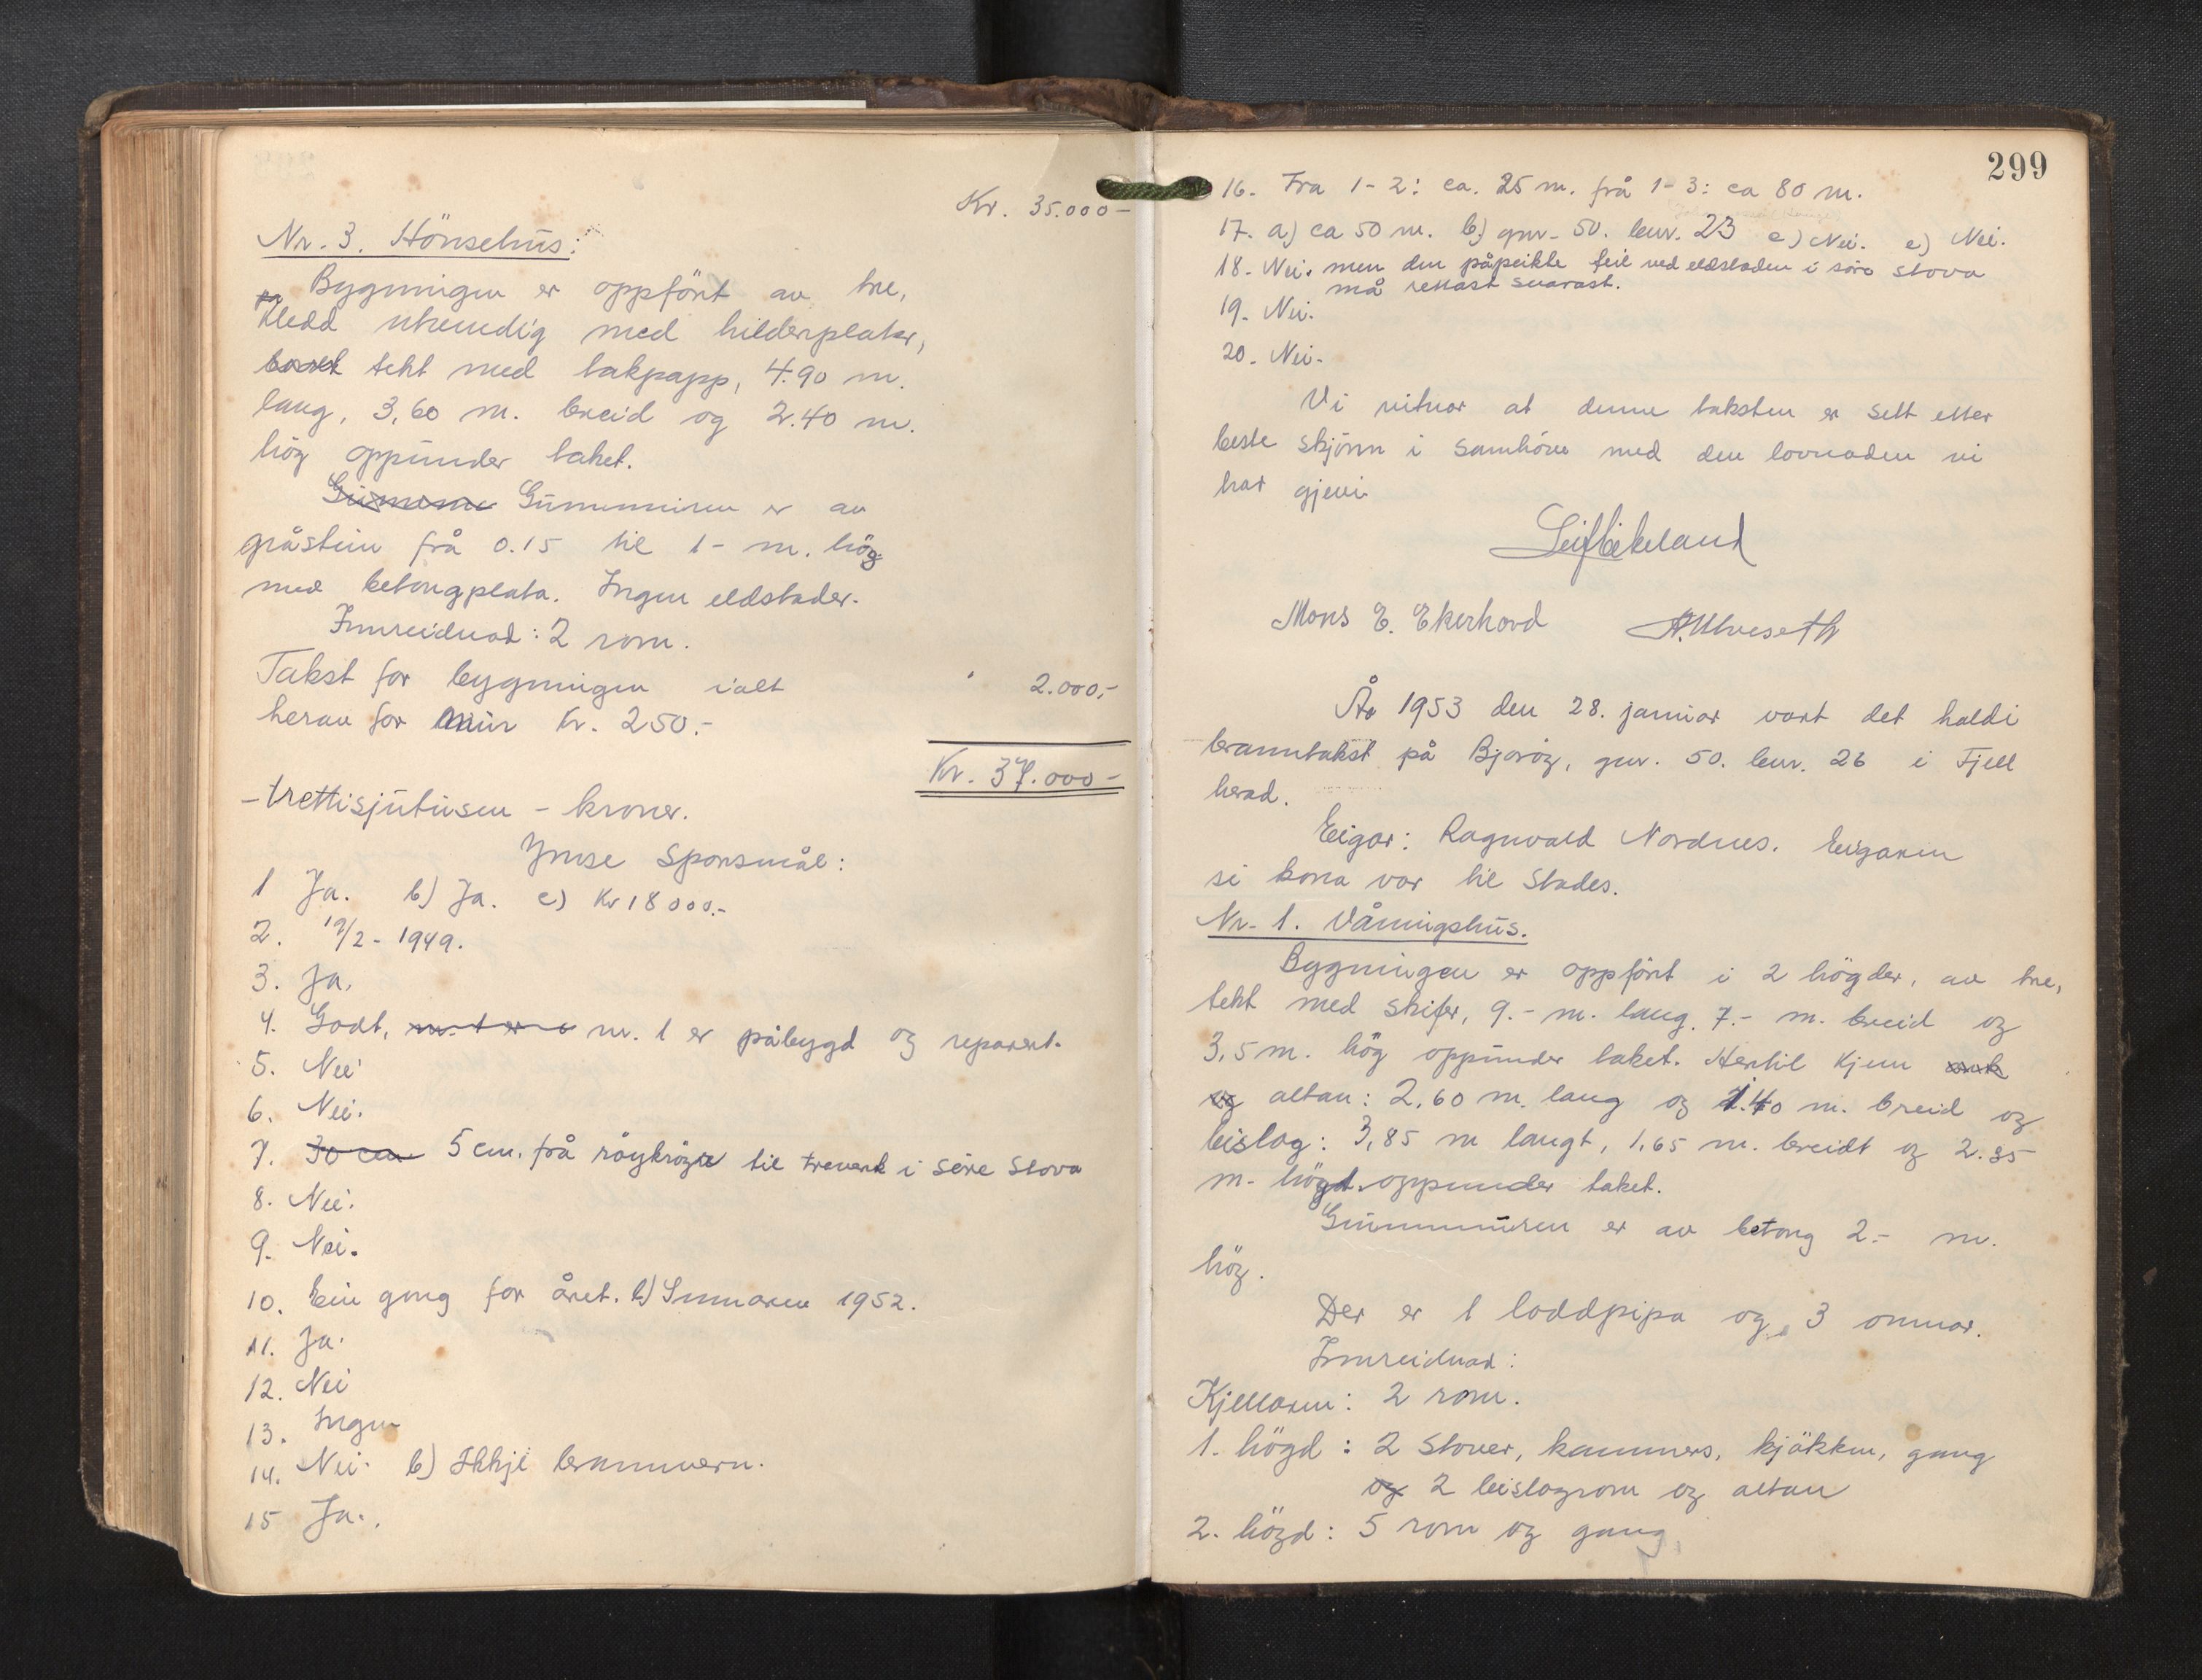 Kr. 35.000-
Nr. 3. Hönsehus:
Bygningen er oppfört av tre,
kledd utvendig med hilderplater,
tekt med takpapp, 4.90 m.
lang, 3,60 m. breid og 2.40 m.
hög oppunder taket.
Grunnmuren er av
gråstein frå 0.15 til 1- m. hög
med betongplata. Ingen eldstader.
Innreidnad: 2 rom.
Takst for bygningen ialt " 2.000,-
herav for mur Kr. 250.-
Kr. 37.000-
- trettisjutusen - kroner.
Ymse Sporsmål:
1 Ja. b) Ja. c) Kr 18000.-
2. 19/2 - 1949.
3. Ja.
4. Godt, nr. 1 er påbygd og reparert.
5. Nei
6. Nei.
7. 30 cm 5 cm. frå röykröyr til treverk i söre Stova
8. Nei.
9. Nei.
10. Ein gong for året. b) Sumaren 1952.
11. Ja.
12. Nei
13. Ingen
14. Nei. b) Ikkje brannvern.
15 Ja.
299
16. Fra 1-2: ca. 25 m. frå 1-3: ca 80 m.
17. a) ca 50 m. b) gnr. 50. bnr. 23 c) Nei. e) Nei.
18. Nei. men den påpeikte feil ved eldstaden i söre stova
må rettast snarast.
19. Nei.
20. Nei.
Vi vitnar at denne taksten er sett etter
beste skjönn i samhöve med den lovnaden vi
har gjevi
Leif Eikeland
Mons E. Ekerhovd A. Ulveseth
År 1953 den 28. januar vart det haldi
branntakst på Bjoröy, gnr. 50. bnr. 26 i Fjell
herad.
Eigar: Ragnvald Nordnes. Eigaren
si kona var til Stades.
Nr. 1. Våningshus.
Bygningen er oppfört i 2 högder, av tre,
tekt med skifer, 9.- m. lang. 7.- m. breid og
3,5 m. hög oppunder taket. Hertil kjem
og altan: 2,60 m. lang og 1.40 m. breid og
bislag: 3,85 m langt, 1,65 m. breidt og 2.35
m. högt oppunder taket.
Grunnmuren er av betong 2.- m.
hög.
Der er 1 loddpipa og 3 omnar.
Innreidnad:
Kjellaren: 2 rom.
1. högd: 2 Stover, kammers, kjökken, gang
og 2 bislagrom og altan
2. högd: 5 rom og gang